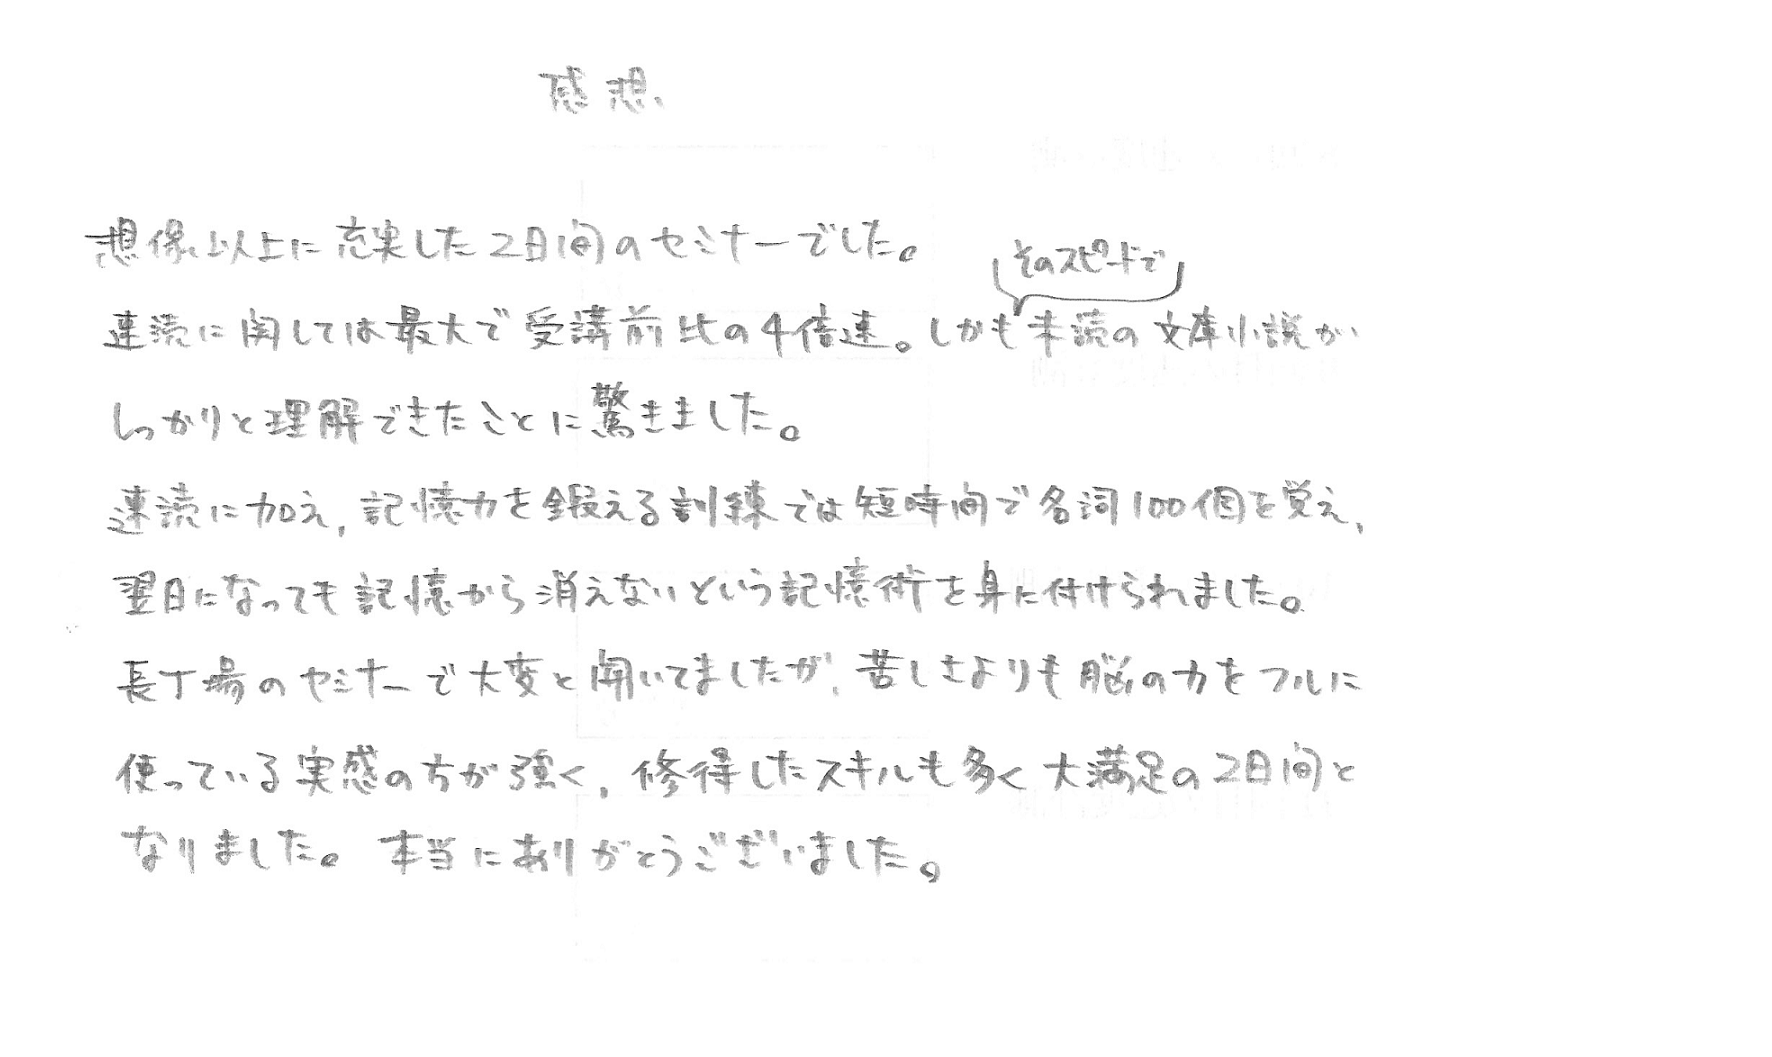 感想
想像以上に充実した2日間のセミナーでした。
そのスピードで
速読に関しては最大で受講前比の4倍速。しかも未読の文庫小説が
しっかりと理解できたことに驚きました。
速読に加え,記憶力を鍛える訓練では短時間で名詞100個を覚え,
翌日になっても記憶から消えないという記憶術を身に付けられました。
長丁場のセミナーで大変と聞いてましたが,苦しさよりも脳の力をフルに
使っている実感の方が強く,修得したスキルも多く大満足の2日間と
なりました。本当にありがとうございました。